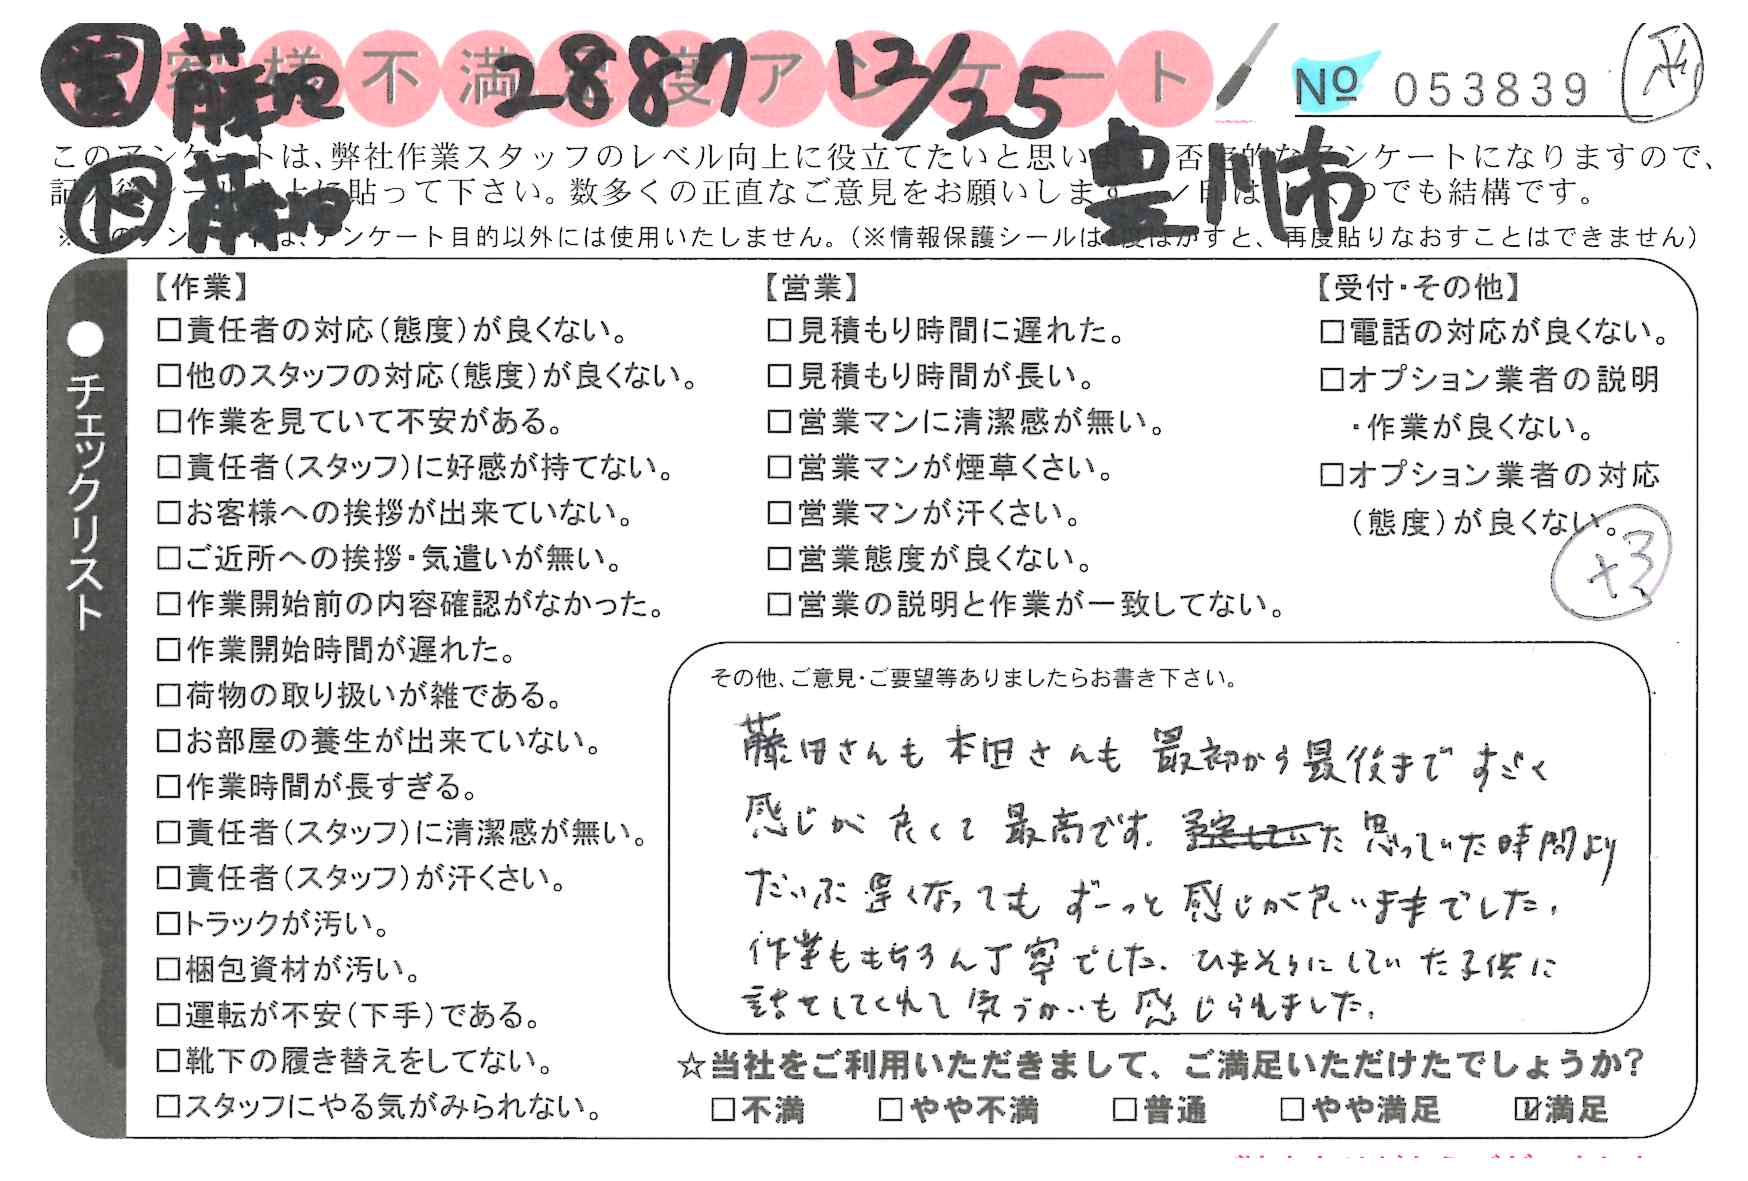 客様不満足度アンケート
藤田 2887 12/25
№ 053839
このアンケートは、弊社作業スタッフのレベル向上に役立てたいと思います。否定的なアンケートになりますので、
藤田 豊川市
貼って下さい。数多くの正直なご意見をお願いします。✓印はいくつでも結構です。
※このアンケートは、アンケート目的以外には使用いたしません。（※情報保護シールは1度はがすと、再度貼りなおすことはできません）
●チェックリスト
【作業】
□責任者の対応（態度）が良くない。
□他のスタッフの対応（態度）が良くない。
□作業を見ていて不安がある。
□責任者（スタッフ）に好感が持てない。
□お客様への挨拶が出来ていない。
□ご近所への挨拶・気遣いが無い。
□作業開始前の内容確認がなかった。
□作業開始時間が遅れた。
□荷物の取り扱いが雑である。
□お部屋の養生が出来ていない。
□作業時間が長すぎる。
□責任者（スタッフ）に清潔感が無い。
□責任者（スタッフ）が汗くさい。
□トラックが汚い。
□梱包資材が汚い。
□運転が不安（下手）である。
□靴下の履き替えをしてない。
□スタッフにやる気がみられない。
【営業】
□見積もり時間に遅れた。
□見積もり時間が長い。
□営業マンに清潔感が無い。
□営業マンが煙草くさい。
□営業マンが汗くさい。
□営業態度が良くない。
□営業の説明と作業が一致してない。
【受付・その他】
□電話の対応が良くない。
□オプション業者の説明
・作業が良くない。
□オプション業者の対応
（態度）が良くない。
+3
その他、ご意見・ご要望等ありましたらお書き下さい。
藤田さんも本田さんも最初から最後まですごく
感じが良くて最高です。予定していた思っていた時間より
だいぶ遅くなってもずーっと感じが良いままでした。
作業ももちろん丁寧でした。ひまそうにしていた子供に
話をしてくれて気づかいも感じられました。
☆当社をご利用いただきまして、ご満足いただけたでしょうか？
□不満 □やや不満 □普通 □やや満足 ☑満足